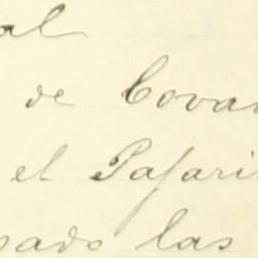 al
de Cova
el Pajari
sado las